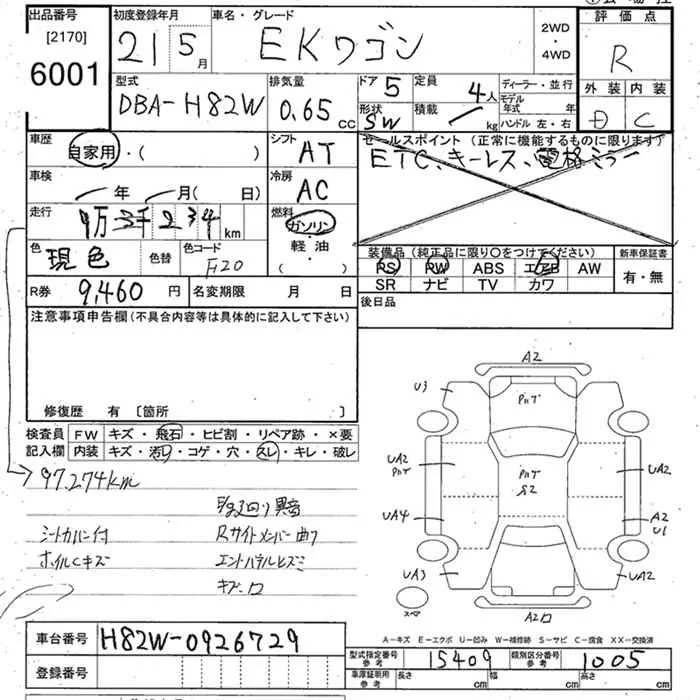 出品番号
[2170]
6001
初度登録年月
21 5月
車名・グレード
EKワゴン
2WD
・
4WD
評価点
R
外装 内装
D C
型式
DBA-H82W
排気量
0.65 CC
ドア 5
定員 4人
形状 SW
積載 kg
ディーラー・並行
モデル年式 年
ハンドル 左・右
車歴
自家用・( )
シフト
AT
セールスポイント (正常に機能するものに限ります)
ETC、キーレス、電格ミラー
車検
年 月( 日)
冷房
AC
走行
km
燃料
ガソリン
軽油
・( )
色
現色
色替
色コード
F20
装備品 (純正品に限り〇をつけてください)
PS RW ABS エアB AW
SR ナビ TV カワ
新車保証書
有・無
R券 9,460 円
名変期限 月 日
後日品
注意事項申告欄 (不具合内容等は具体的に記入して下さい)
修復歴 有 〔箇所 〕
検査員記入欄
FW キズ・飛石・ヒビ割・リペア跡・×要
内装 キズ・汚レ・コゲ・穴・スレ・キレ・破レ
97,274km
シートカバー付
ホイルCキズ
Rサイドメンバー曲り
A2
U3
UA2
UA4
UA3
UA2
A2
U1
UA2
スペア
A-キズ E-エクボ U-凹み W-補修跡 S-サビ C-腐食 XX-交換済
車台番号 H82W-0926729
登録番号
型式指定番号 参考 15409
類別区分番号 参考 1005
車庫証明用 参考 長さ cm 幅 cm 高さ cm